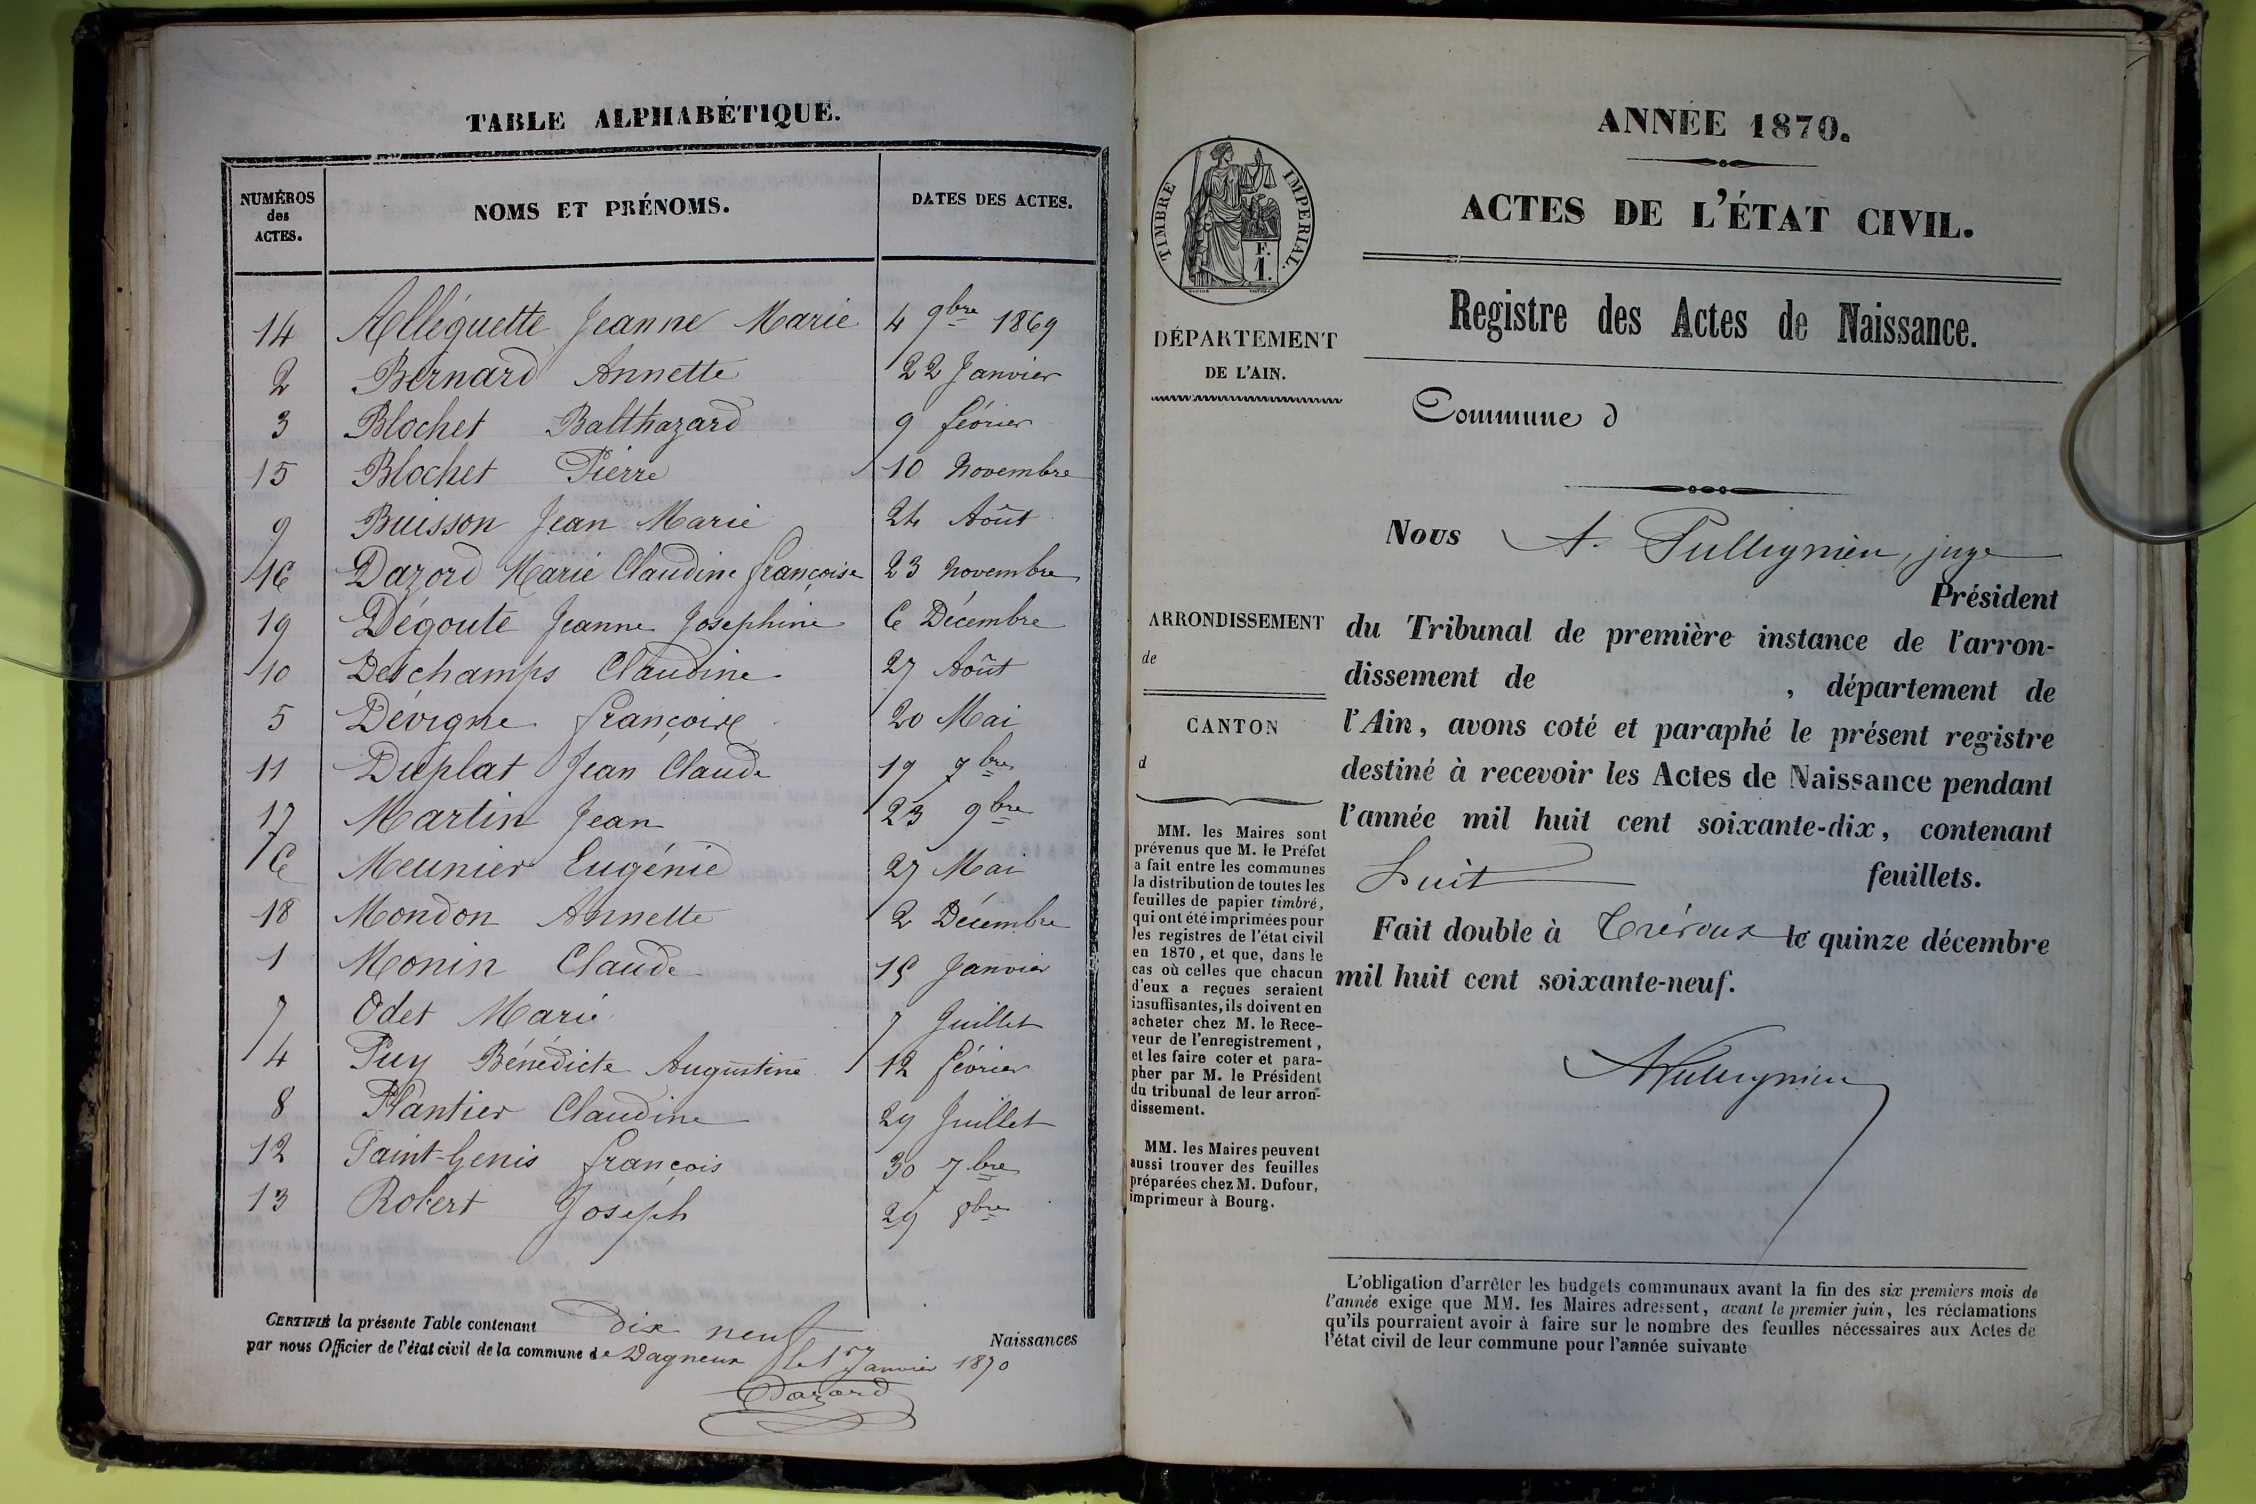 TABLE ALPHABÉTIQUE.
NUMÉROS des ACTES. NOMS ET PRÉNOMS. DATES DES ACTES.
14 Alléguette Jeanne Marie 4 9bre 1869
2 Bernard Annette 22 Janvier
3 Blochet Balthazard 9 février
15 Blochet Pierre 10 Novembre
9 Buisson Jean Marie 24 Août
16 Dazord Marie Claudine françoise 23 Novembre
19 Dégoute Jeanne Josephine 6 Décembre
10 Deschamps Claudine 27 Août
5 Dévigne françoise 20 Mai
11 Duplat Jean Claude 19 7bre
17 Martin Jean 23 9bre
6 Meunier Eugénie 27 Mai
18 Mondon Annette 2 Décembre
1 Monin Claude 15 Janvier
7 Odet Marie 7 Juillet
4 Puy Bénédicte Augustine 12 février
8 Plantier Claudine 29 Juillet
12 Saint-Genis françois 30 7bre
13 Robert Joseph 29 8bre
CERTIFIÉ la présente Table contenant dix neuf Naissances
par nous Officier de l'état civil de la commune de Dagneux le 1er Janvier 1870
Dazord
TIMBRE IMPERIAL.
F.
1.
DÉPARTEMENT
DE L'AIN.
ARRONDISSEMENT
de
CANTON
d
MM. les Maires sont
prévenus que M. le Préfet
a fait entre les communes
la distribution de toutes les
feuilles de papier timbré,
qui ont été imprimées pour
les registres de l'état civil
en 1870, et que, dans le
cas où celles que chacun
d'eux a reçues seraient
insuffisantes, ils doivent en
acheter chez M. le Rece-
veur de l'enregistrement,
et les faire coter et para-
pher par M. le Président
du tribunal de leur arron-
dissement.
MM. les Maires peuvent
aussi trouver des feuilles
préparées chez M. Dufour,
imprimeur à Bourg.
ANNÉE 1870.
ACTES DE L'ÉTAT CIVIL.
Registre des Actes de Naissance.
Commune d
Nous A. Pullignieu, juge
Président
du Tribunal de première instance de l'arron-
dissement de , département de
l'Ain, avons coté et paraphé le présent registre
destiné à recevoir les Actes de Naissance pendant
l'année mil huit cent soixante-dix, contenant
huit feuillets.
Fait double à Trévoux le quinze décembre
mil huit cent soixante-neuf.
L'obligation d'arrêter les budgets communaux avant la fin des six premiers mois de
l'année exige que MM. les Maires adressent, avant le premier juin, les réclamations
qu'ils pourraient avoir à faire sur le nombre des feuilles nécessaires aux Actes de
l'état civil de leur commune pour l'année suivante